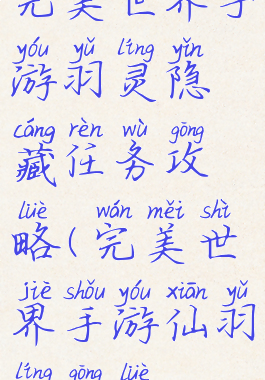 完美世界手
yóu yǔ líng yǐn
游羽灵隐
cáng rèn wù gōng
藏任务攻
lüè wán měi shì
略(完美世
jiè shǒu yóu xiān yǔ
界手游仙羽
líng gōng lüè